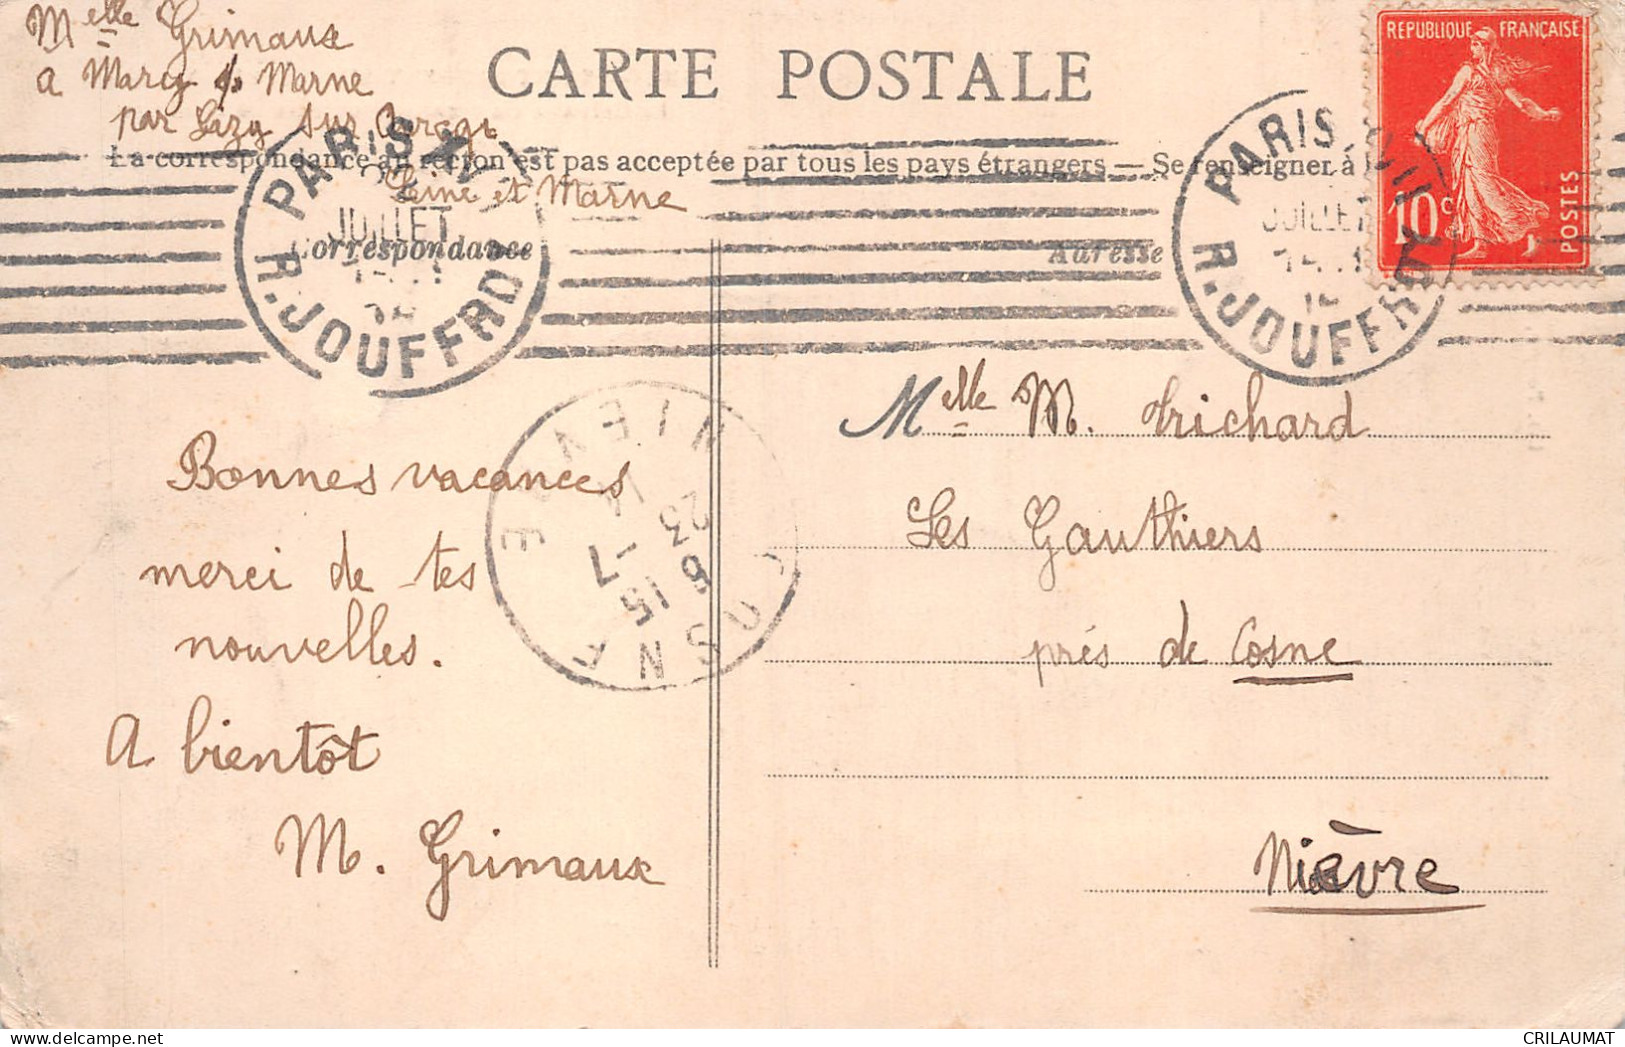 Melle Grimaux
a Marcy s/ Marne
par Lizy sur Ourcq
Seine et Marne
CARTE POSTALE
La correspondance au recto n'est pas acceptée par tous les pays étrangers — Se renseigner à l
Correspondance
Adresse
REPUBLIQUE FRANÇAISE
10c
POSTES
PARIS XV
JUILLET
14
R. JOUFFROY
PARIS XVII
JUILLET
14
R. JOUFFROY
COSNE
NIEVRE
8 15
23 -7
14
Bonnes vacances
merci de tes
nouvelles.
A bientôt
M. Grimaux
Melle M. Trichard
Les Gauthiers
près de Cosne
Nièvre
CRILAUMAT